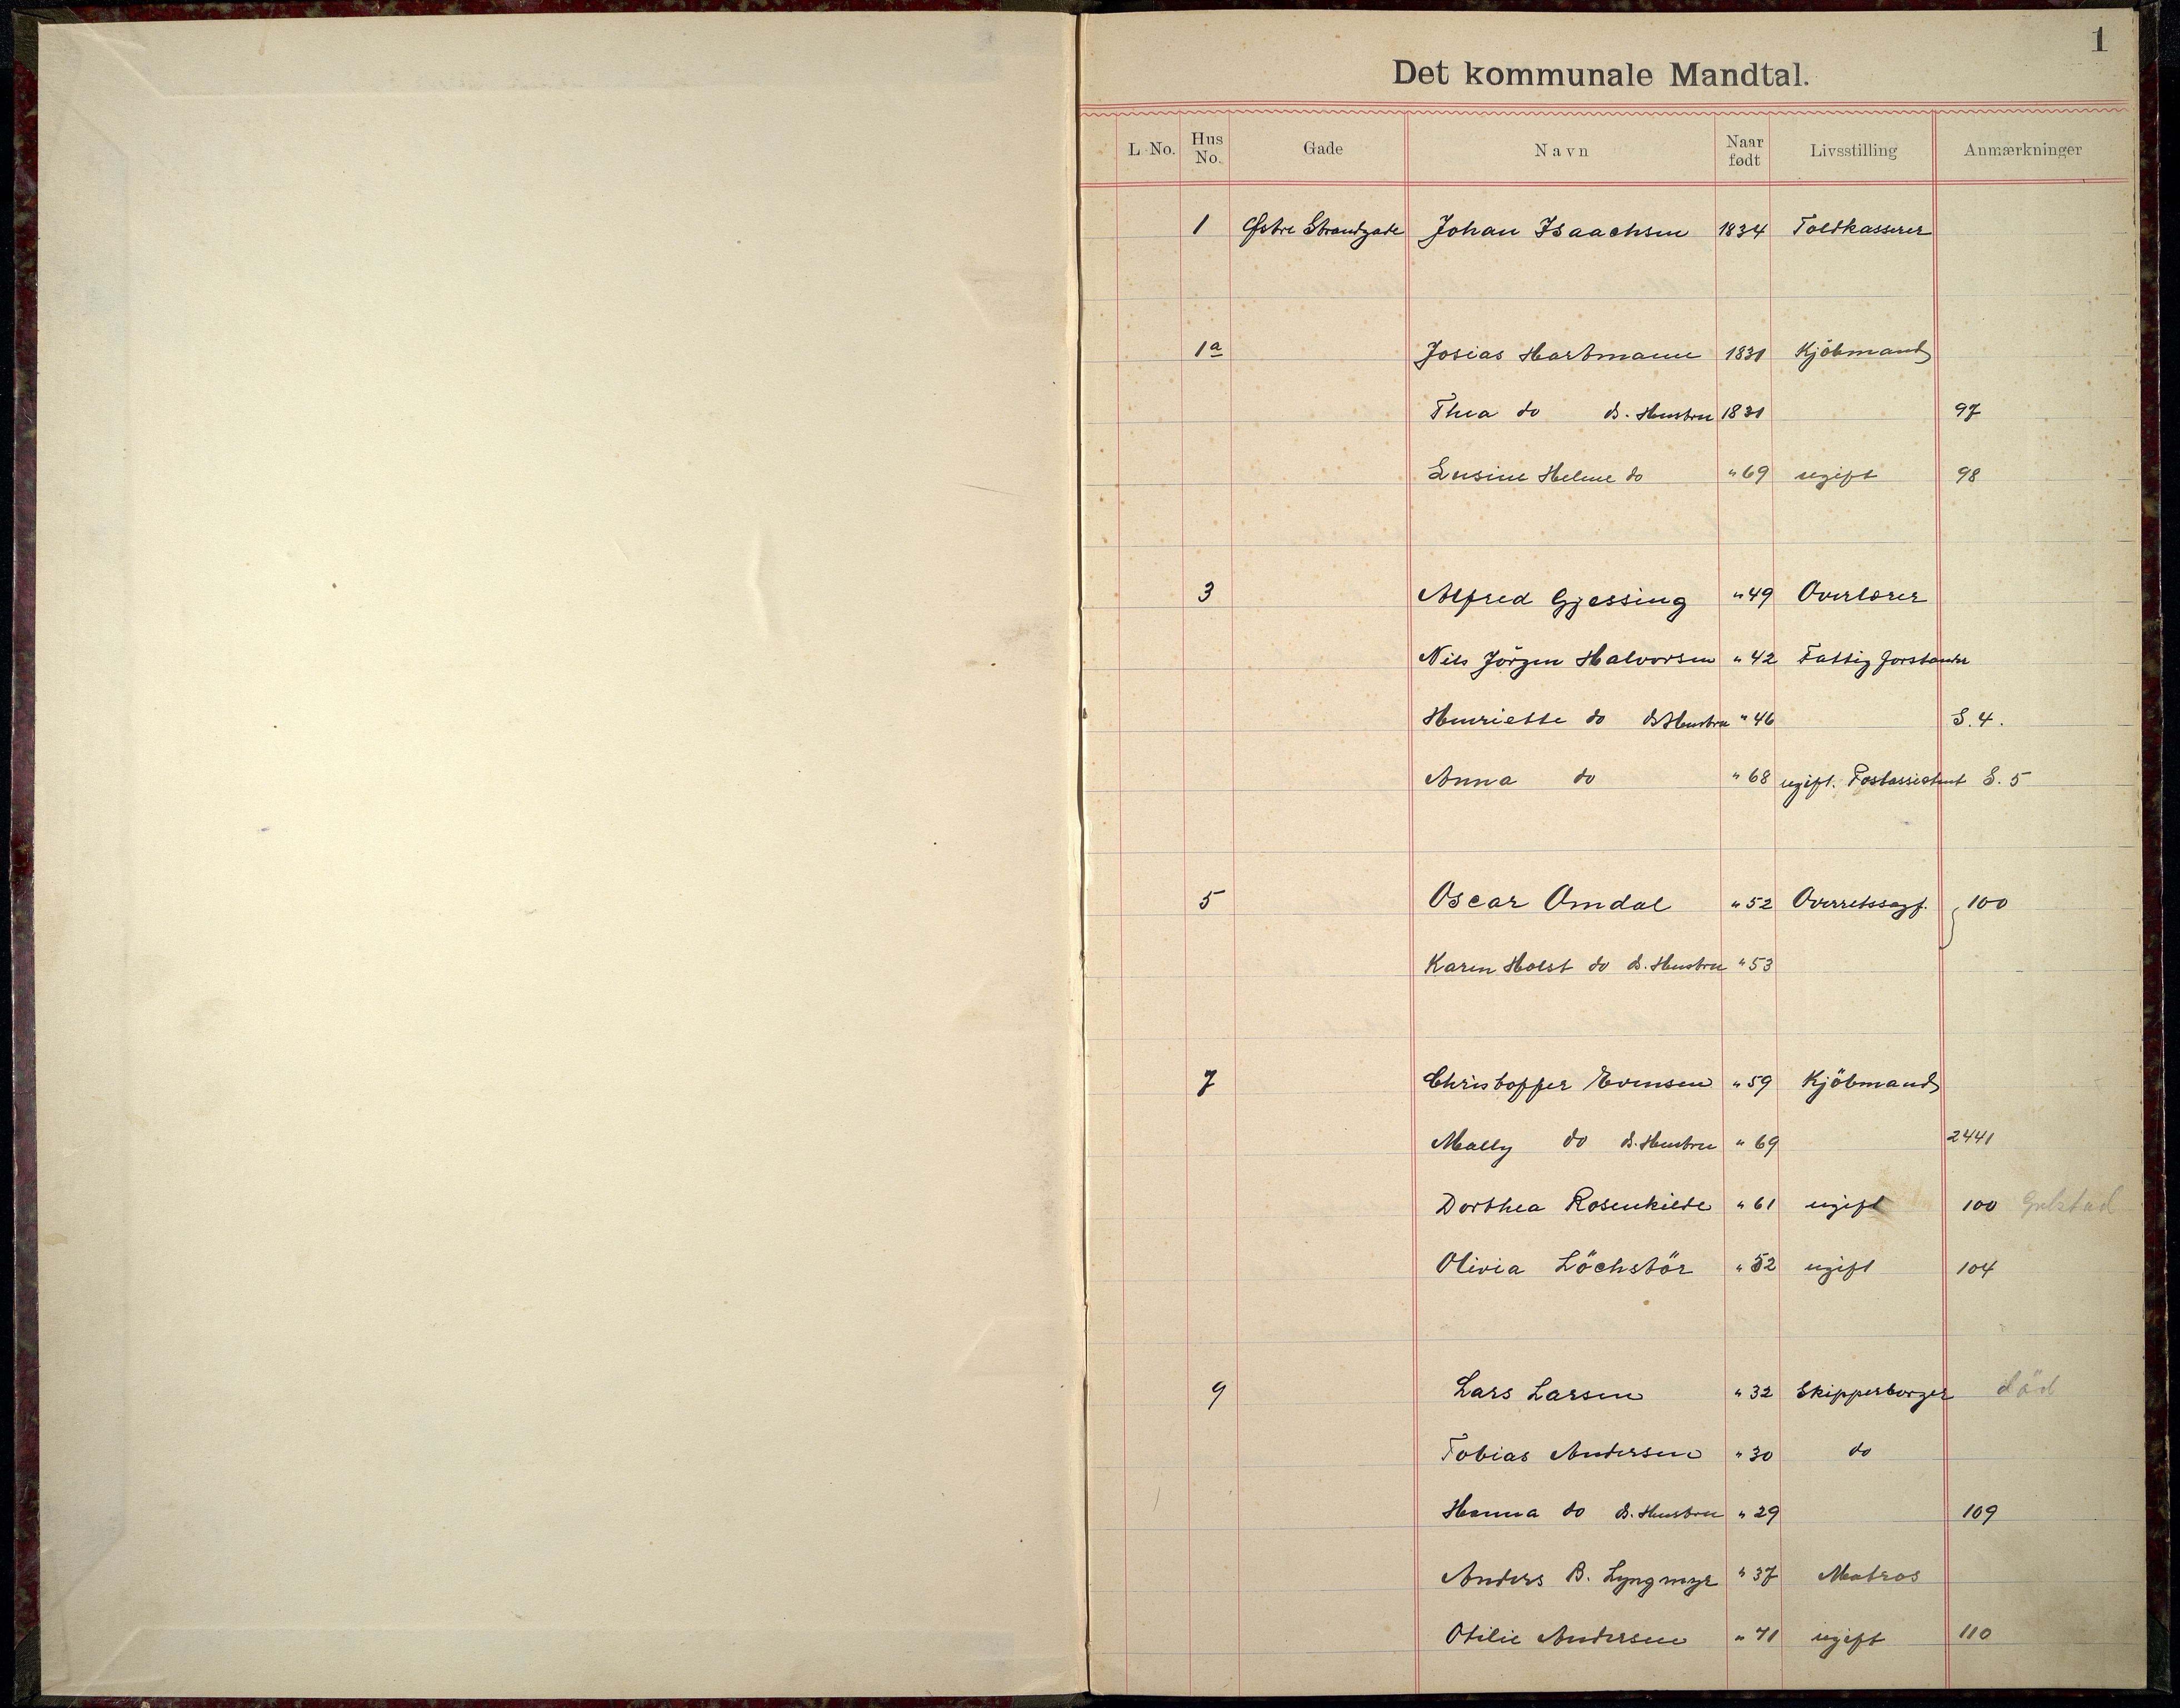 1
Det kommunale Mandtal.
L. No. Hus No. Gade Navn Naar født Livsstilling Anmærkninger
1 Østre Strandgade Johan Isaachsen 1834 Toldkasserer
1a Josias Hartmann 1831 Kjöbmand
Thea do d. Hustru 1831 97
Lusine Helene do " 69 ugift 98
3 Alfred Gjessing " 49 Overlærer
Nils Jörgen Halvorsen " 42 Fattigforstander
Henriette do d. Hustru " 46 S. 4.
Anna do " 68 ugift. Postassistent S. 5
5 Oscar Omdal " 52 Overretssagf. 100
Karen Holst do d. Hustru " 53
7 Christopffer Evensen " 59 Kjöbmand
Mally do d. Hustru " 69 2441
Dorthea Rosenkilde " 61 ugift 100
Olivia Löchstör " 52 ugift 104
9 Lars Larsen " 32 Skipperborger död
Tobias Andersen " 30 do
Hanna do d. Hustru " 29 109
Anders B. Lyngmyr " 37 Matros
Otilie Andersen " 71 ugift 110